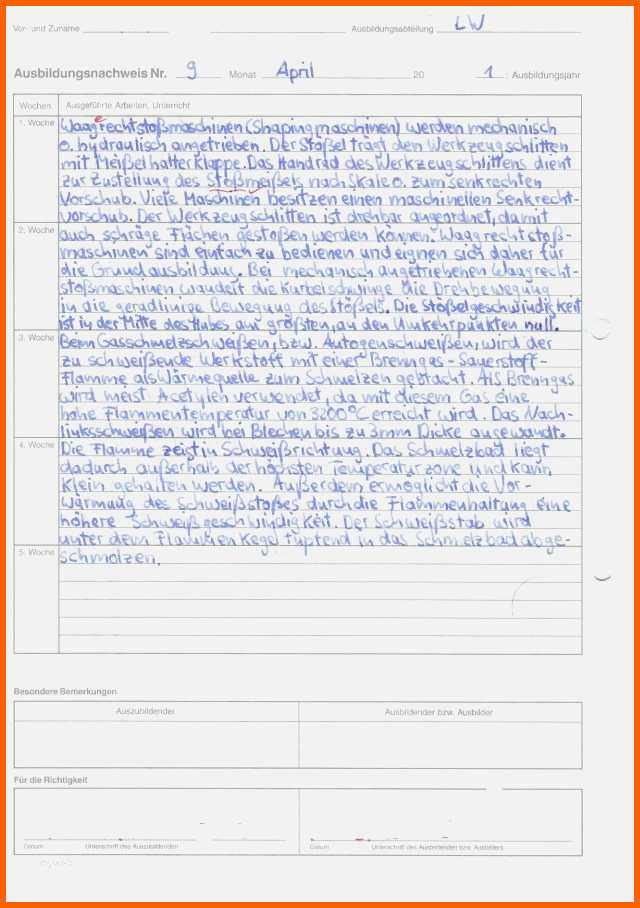 Vor- und Zuname
Ausbildungsabteilung LW
Ausbildungsnachweis Nr. 9 Monat April 20 1. Ausbildungsjahr
Wochen Ausgeführte Arbeiten, Unterricht
1. Woche Waagerechtstoßmaschinen (Shapingmaschinen) werden mechanisch
o. hydraulisch angetrieben. Der Stößel trägt den Werkzeugschlitten
mit Meißelhalterklappe. Das Handrad des Werkzeugschlittens dient
zur Zustellung des Stoßmeißels nach Skale o. zum senkrechten
Vorschub. Viele Maschinen besitzen einen maschinellen Senkrecht-
vorschub. Der Werkzeugschlitten ist drehbar angeordnet, damit
2. Woche auch schräge Flächen gestoßen werden können. Waagrechtstoß-
maschinen sind einfach zu bedienen und eignen sich daher für
die Grundausbildung. Bei mechanisch angetriebenen Waagrecht-
stoßmaschinen wandelt die Kurbelschwinge die Drehbewegung
in die geradlinige Bewegung des Stößels. Die Stößelgeschwindigkeit
ist in der Mitte des Hubes am größten, an den Umkehrpunkten null.
3. Woche Beim Gasschmelzschweißen, bzw. Autogenschweißen, wird der
zu schweißende Werkstoff mit einer Brenngas-Sauerstoff-
Flamme als Wärmequelle zum Schmelzen gebracht. Als Brenngas
wird meist Acetylen verwendet, da mit diesem Gas eine
hohe Flammentemperatur von 3200°C erreicht wird. Das Nach-
linksschweißen wird bei Blechen bis zu 3mm Dicke angewandt.
4. Woche Die Flamme zeigt in Schweißrichtung. Das Schmelzbad liegt
dadurch außerhalb der höchsten Temperaturzone und kann
klein gehalten werden. Außerdem ermöglicht die Vor-
wärmung des Schweißstoßes durch die Flammenhaltung eine
höhere Schweißgeschwindigkeit. Der Schweißstab wird
unter dem Flammenkegel tupfend in das Schmelzbad abge-
5. Woche schmolzen.
Besondere Bemerkungen
Auszubildender Ausbildender bzw. Ausbilder
Für die Richtigkeit
Datum Unterschrift des Auszubildenden Datum Unterschrift des Ausbildenden bzw. Ausbilders